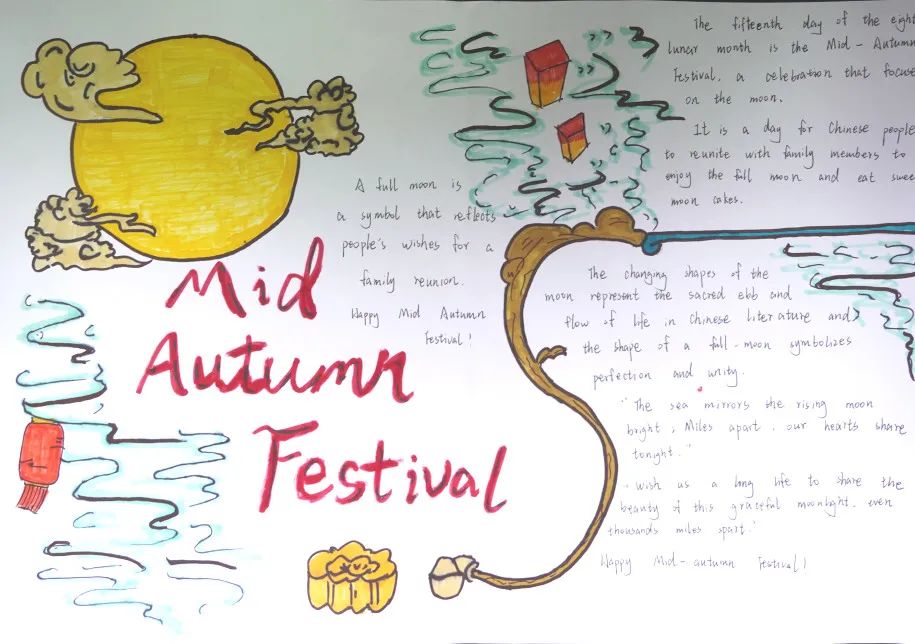 Mid
Autumn
Festival
A full moon is
a symbol that reflects
people's wishes for a
family reunion.
Happy Mid Autumn
Festival!
The fifteenth day of the eight
lunar month is the Mid-Autumn
Festival, a celebration that focuse
on the moon.
It is a day for Chinese people
to reunite with family members to
enjoy the full moon and eat swee
moon cakes.
The changing shapes of the
moon represent the sacred ebb and
flow of life in Chinese literature and
the shape of a full-moon symbolizes
perfection and unity.
"The sea mirrors the rising moon
bright, Miles apart, our hearts share
tonight."
"wish us a long life to share the
beauty of this graceful moonlight, even
thousands miles apart."
Happy Mid-autumn Festival!